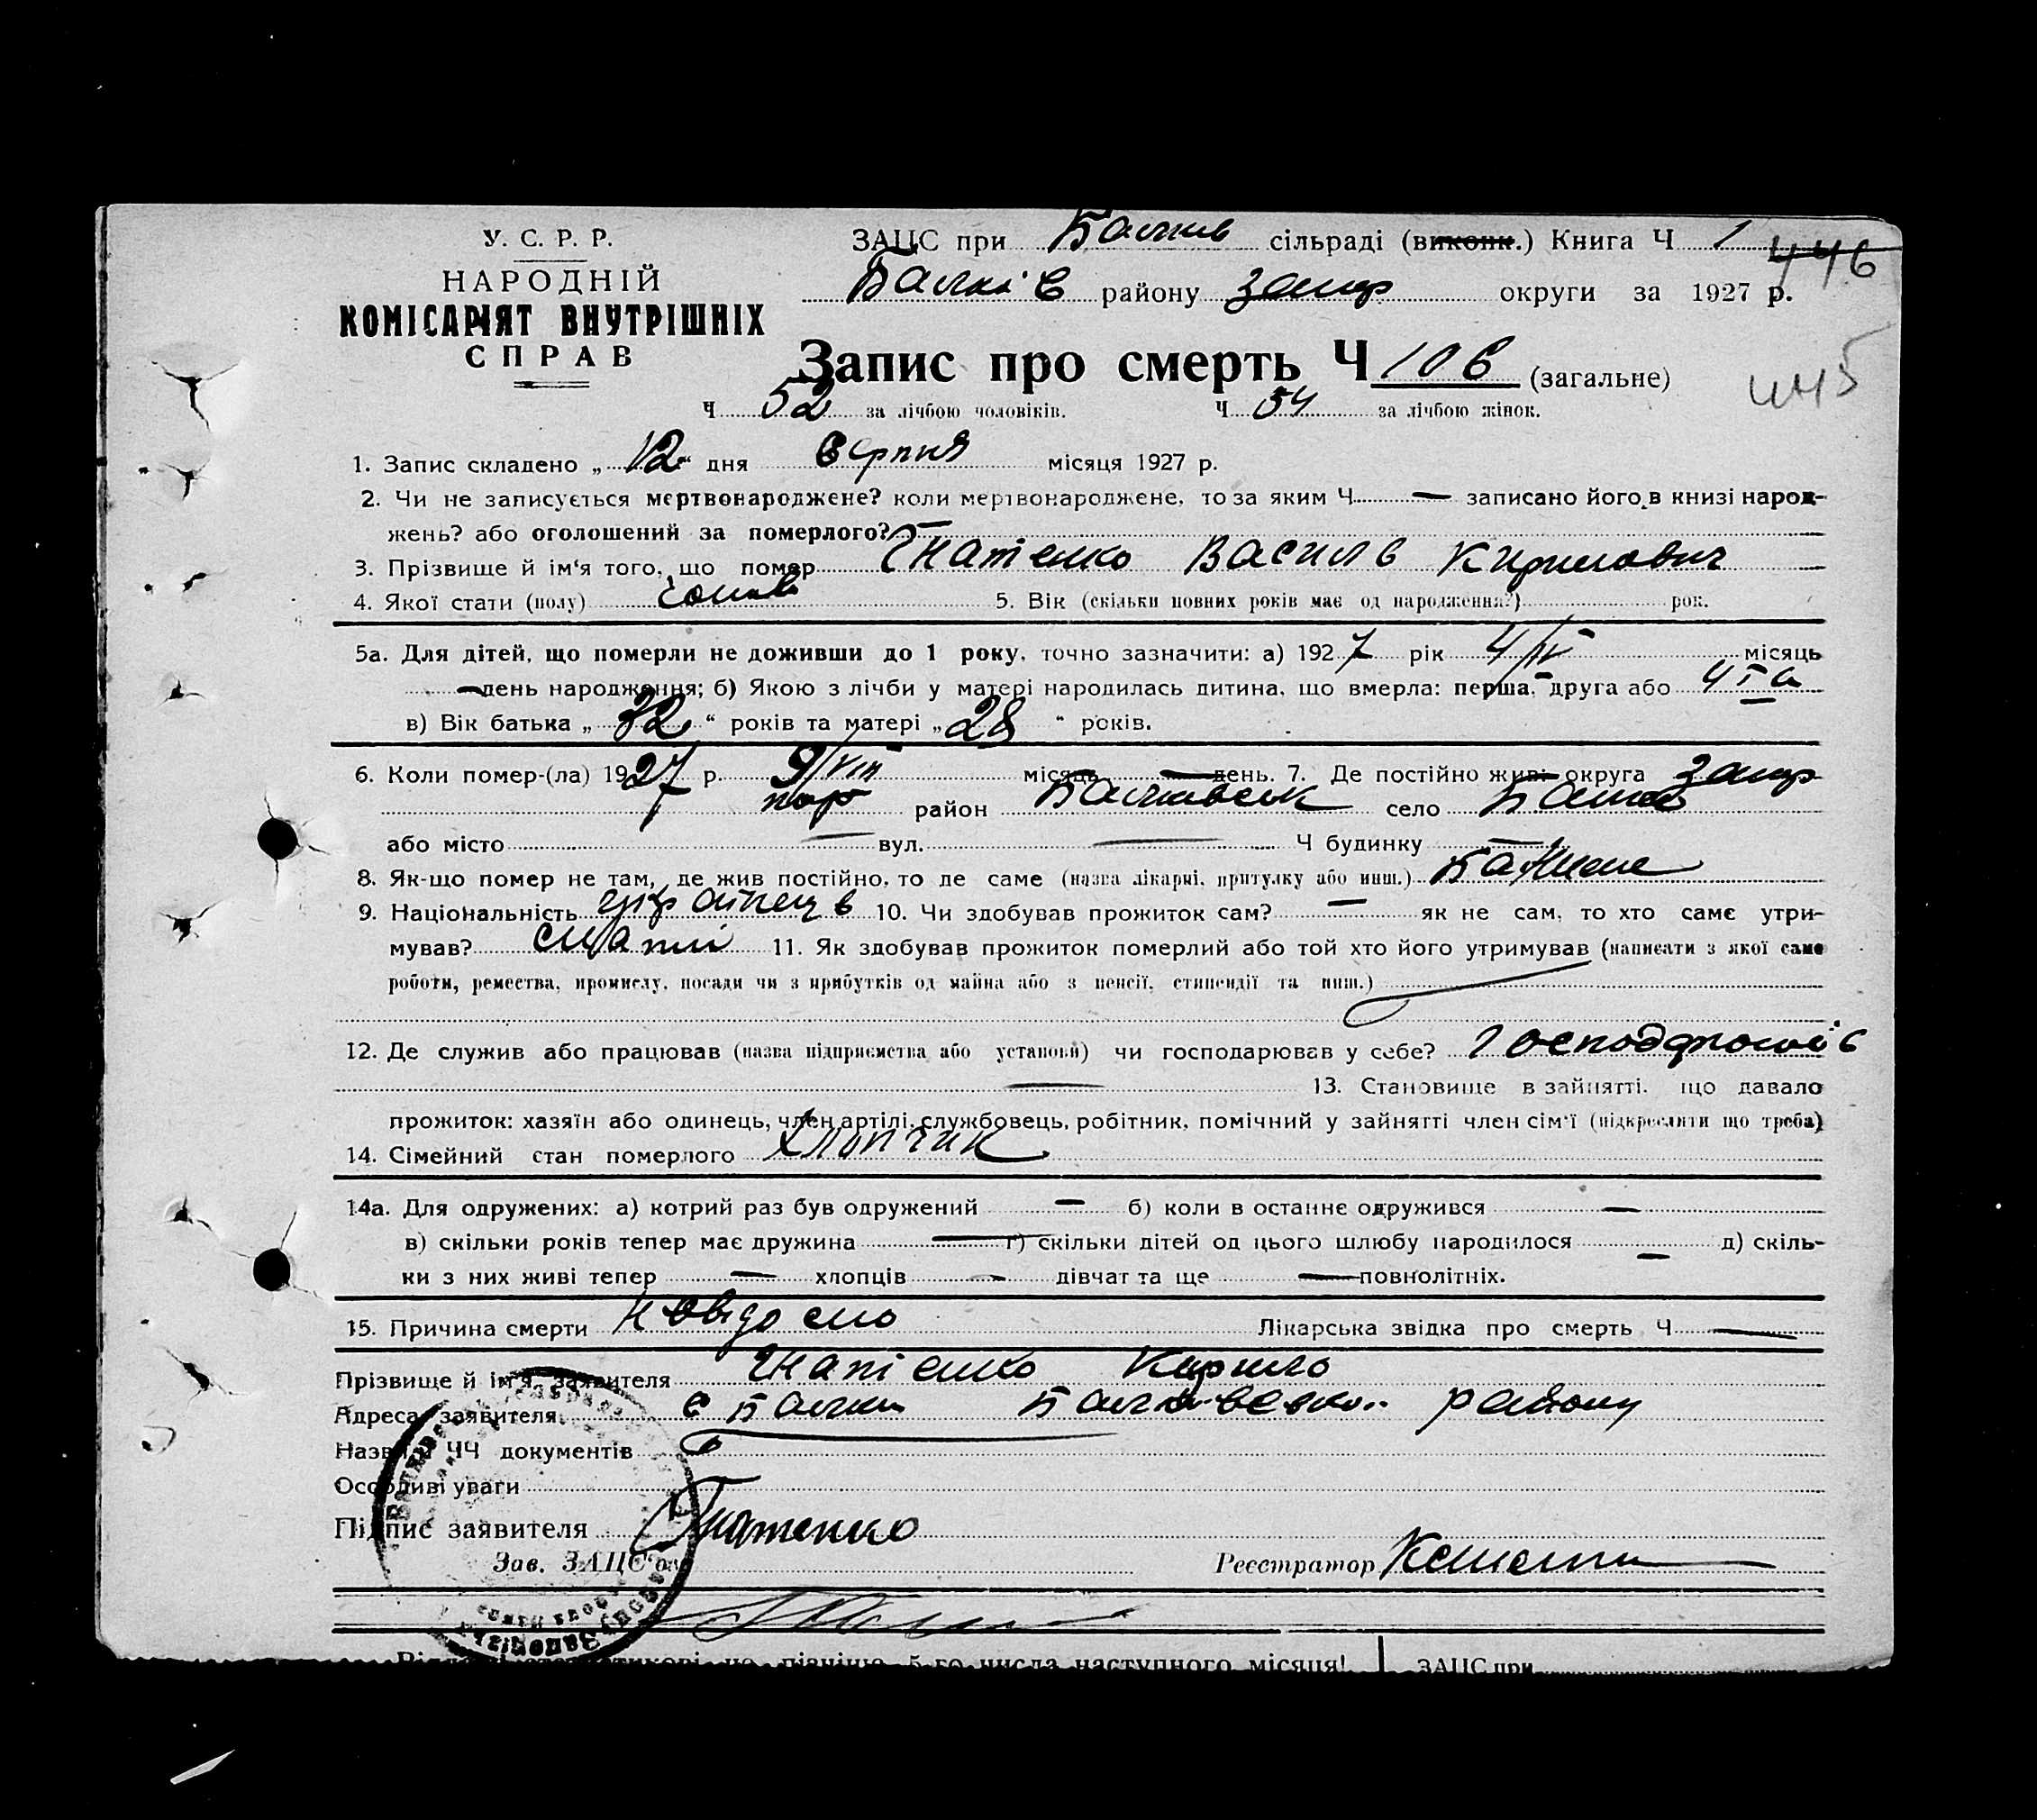 У. С. Р. Р.
НАРОДНІЙ
КОМІСАРІЯТ ВНУТРІШНІХ
СПРАВ
ЗАЦС при Балків сільраді (викон.) Книга Ч 1
446
Балків району Запор округи за 1927 р.
Запис про смерть Ч 106 (загальне)
445
Ч 52 за лічбою чоловіків. Ч 54 за лічбою жінок.
1. Запис складено „12“ дня серпня місяця 1927 р.
2. Чи не записується мертвонароджене? коли мертвонароджене, то за яким Ч — записано його в книзі народ-
жень? або оголошений за померлого? —
3. Прізвище й ім'я того, що помер Гнатенко Василь Кирилович
4. Якої стати (полу) 5. Вік (скільки повних років має од народження?) рок.
5а. Для дітей, що померли не доживши до 1 року, точно зазначити: а) 1927 рік 4/IV місяць
— день народження; б) Якою з лічби у матері народилась дитина, що вмерла: перша, друга або 4та
в) Вік батька „32“ років та матері „28“ років.
6. Коли помер-(ла) 1927 р. 9/VIII місяць — день. 7. Де постійно жив: округа Запор
район Балківськ село Балки
або місто — вул. — Ч будинку —
8. Як-що помер не там, де жив постійно, то де саме (назва лікарні, притулку або инш.)
9. Національність українець 10. Чи здобував прожиток сам? — як не сам, то хто саме утри-
мував? 11. Як здобував прожиток померлий або той хто його утримував (написати з якої саме
роботи, ремества, промислу, посади чи з прибутків од майна або з пенсії, стипендії та инш.)
12. Де служив або працював (назва підприємства або установи) чи господарював у себе?
— 13. Становище в зайнятті, що давало
прожиток: хазяїн або одинець, член артілі, службовець, робітник, помічний у зайнятті член сім'ї (підкреслити що треба)
14. Сімейний стан померлого хлопчик
14а. Для одружених: а) котрий раз був одружений — б) коли в останнє одружився —
в) скільки років тепер має дружина — г) скільки дітей од цього шлюбу народилося — д) скіль-
ки з них живі тепер — хлопців — дівчат та ще — повнолітніх.
15. Причина смерти невідомо Лікарська звідка про смерть Ч —
Прізвище й ім'я заявителя Гнатенко Кирило
Адреса заявителя с Балки Балківськ. району
Назви й ЧЧ документів
Особливі уваги
Підпис заявителя Гнатенко
Зав. ЗАЦС'ом Реєстратор
Відділові статистикові не пізніше 5-го числа наступного місяця! ЗАЦС при